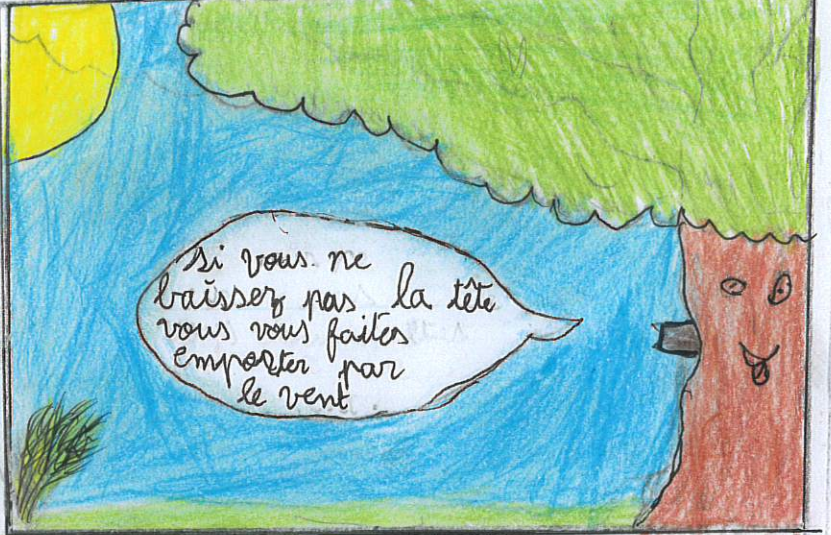 si vous ne
baissez pas la tête
vous vous faites
emporter par
le vent